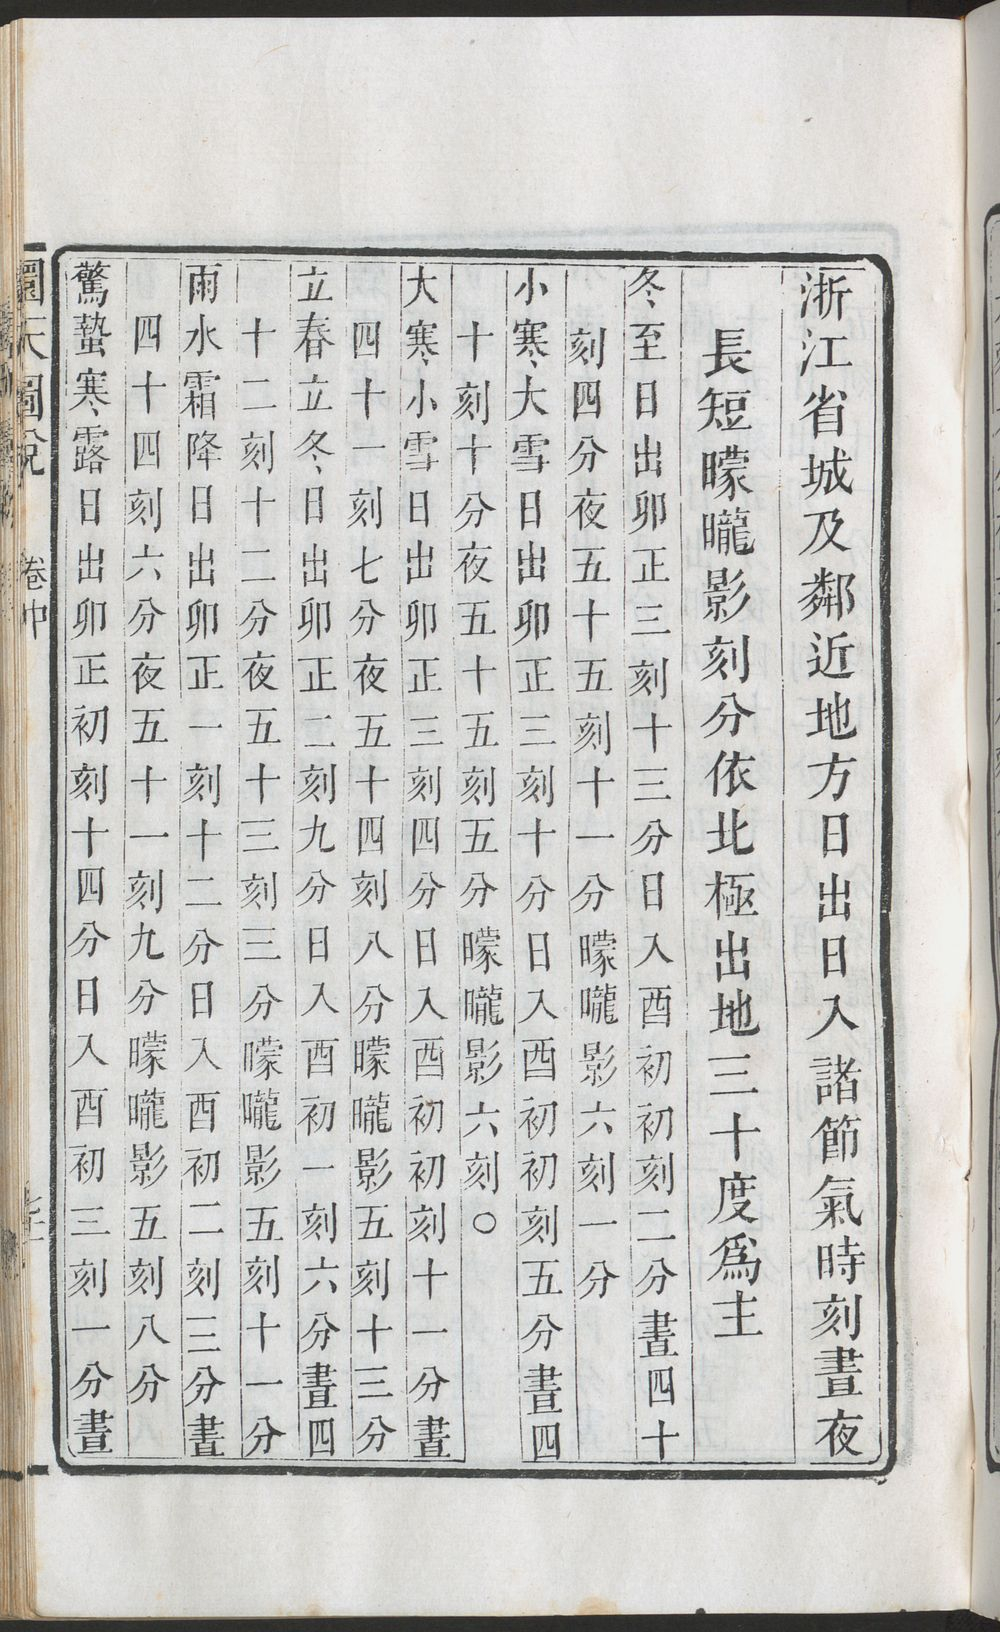 浙江省城及鄰近地方日出日入諸節氣時刻晝夜
長短曚曨影刻分依北極出地三十度爲主
冬至日出卯正三刻十三分日入酉初初刻二分晝四十
刻四分夜五十五刻十一分曚曨影六刻一分
小寒大雪日出卯正三刻十分日入酉初初刻五分晝四
十刻十分夜五十五刻五分曚曨影六刻〇
大寒小雪日出卯正三刻四分日入酉初初刻十一分晝
四十一刻七分夜五十四刻八分曚曨影五刻十三分
立春立冬日出卯正二刻九分日入酉初一刻六分晝四
十二刻十二分夜五十三刻三分曚曨影五刻十一分
雨水霜降日出卯正一刻十二分日入酉初二刻三分晝
四十四刻六分夜五十一刻九分曚曨影五刻八分
驚蟄寒露日出卯正初刻十四分日入酉初三刻一分晝
圜天圖說 卷中